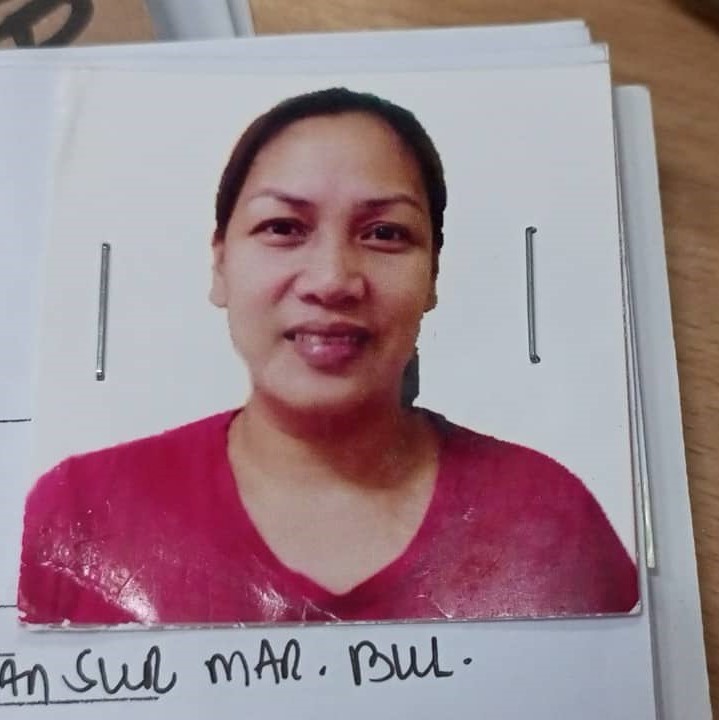 AN SUR MAR. BUL.